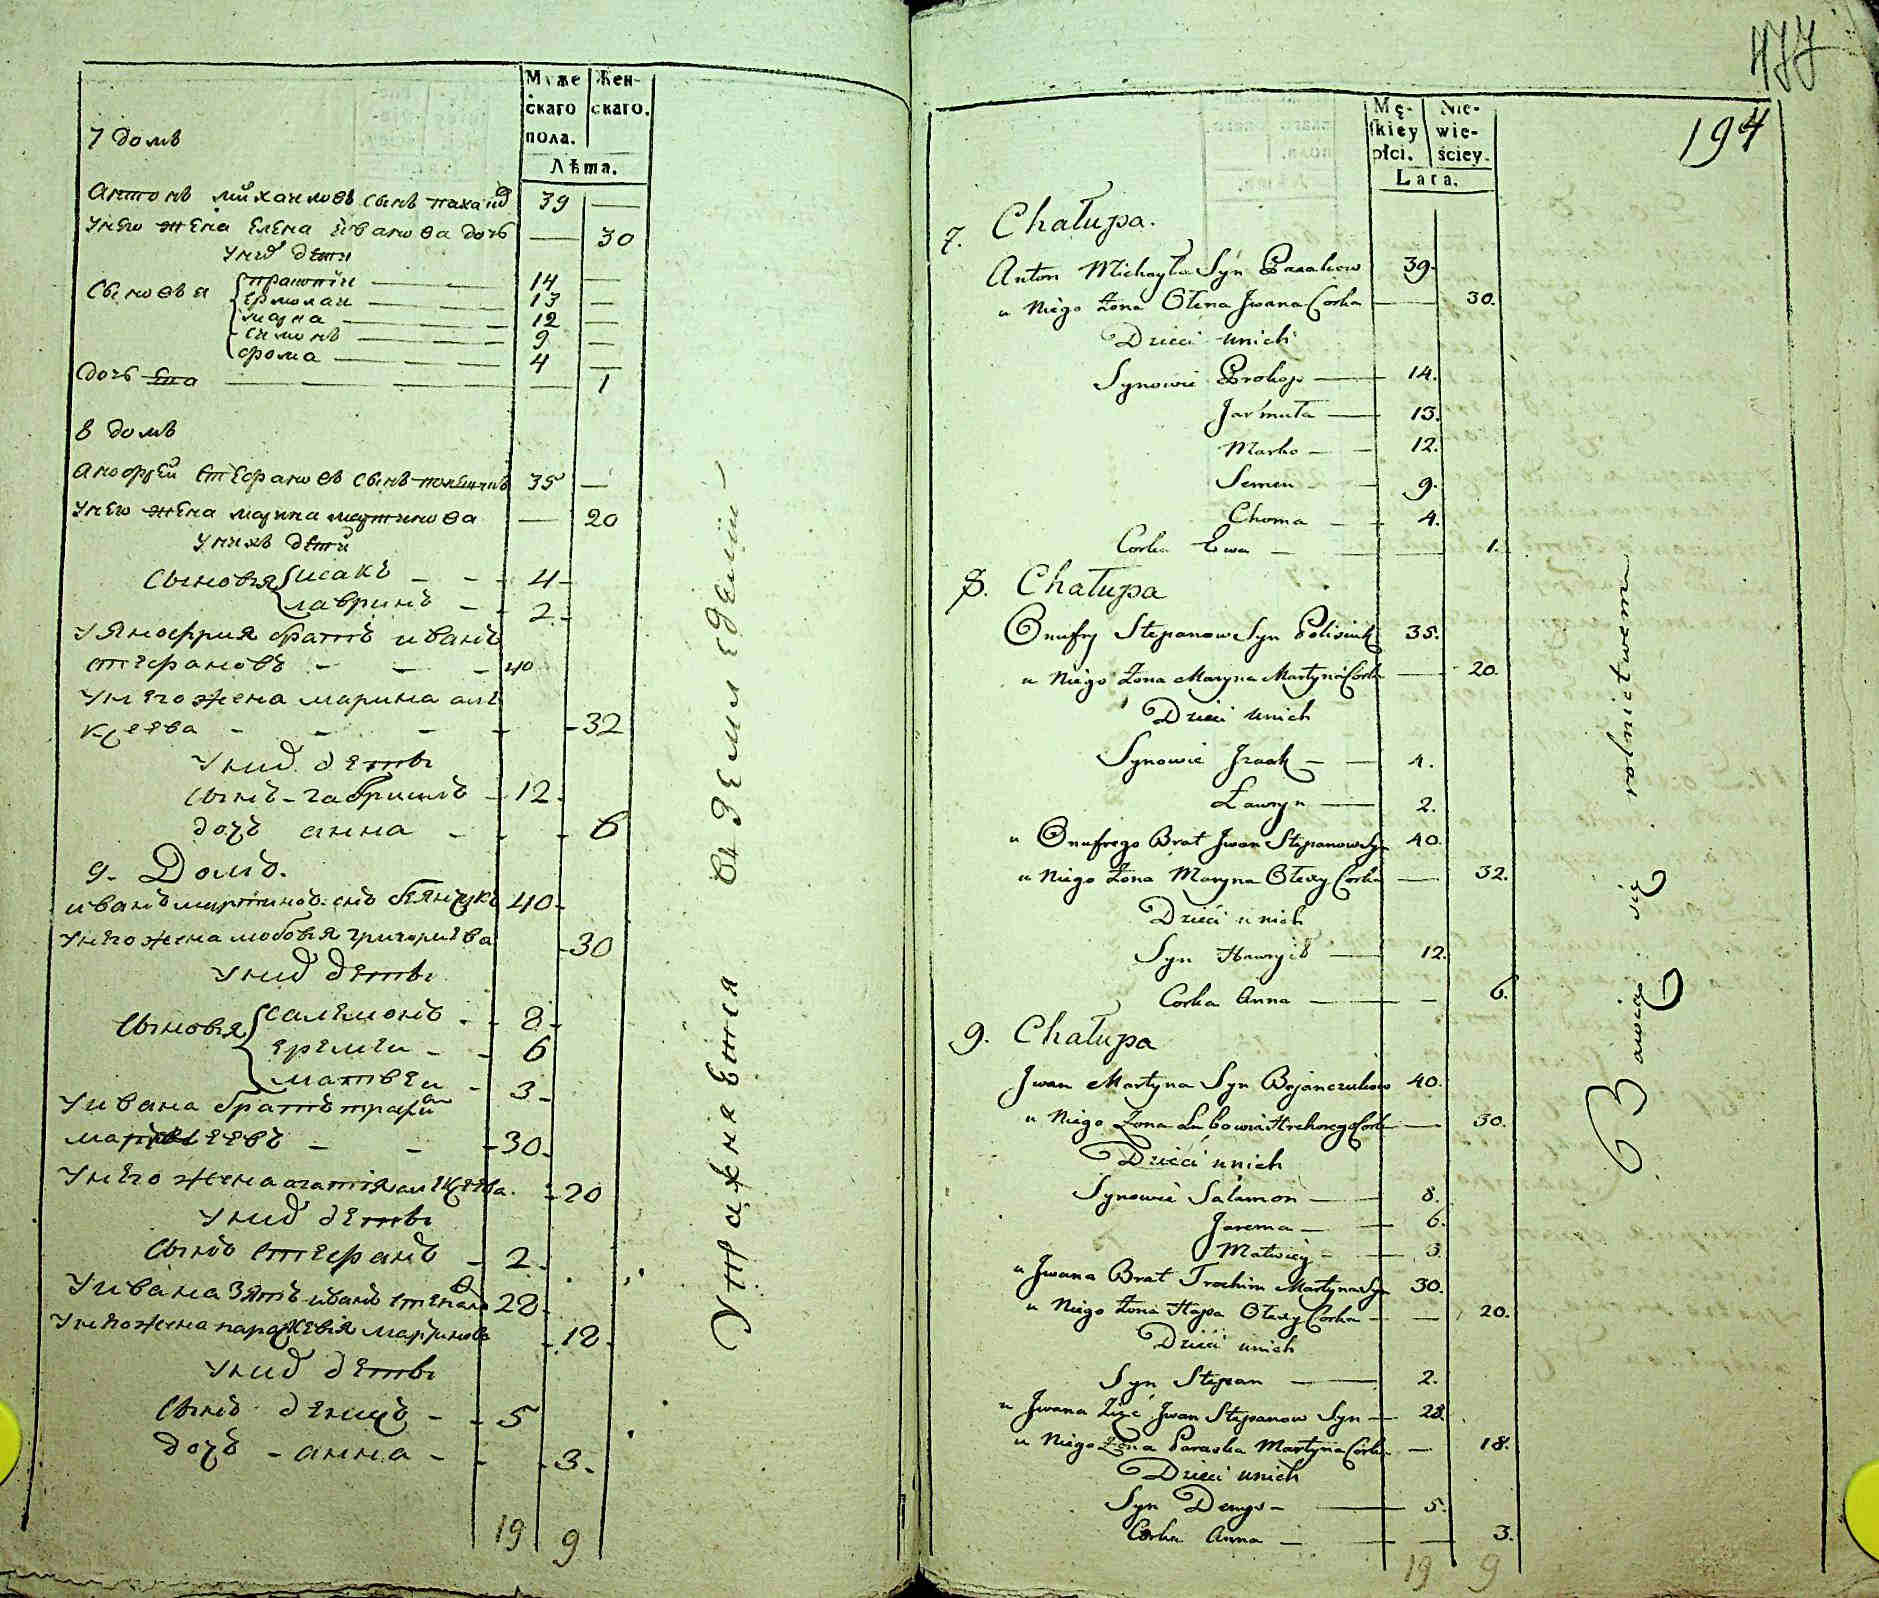 Муже
скаго
пола.
Жен-
скаго.
Лѣта.
7 домъ
Антонъ Михаиловъ сынъ 39
у него жена Елена Иванова дочь 30
у них дети
Сыновья Прокопий 14
Ермолай 13
Марко 12
Симонъ 9
Фома 4
дочь Ева 1
8 домъ
Анофрей Стефановъ сынъ 35
у него жена Марина Мартинова 20
у нихъ дети
сыновья исакъ 4
лавринъ 2
у Анофрия братъ иванъ
стефановъ 40
у него жена марина але
ксеева 32
у них дети
сынъ гавришъ 12
дочь анна 6
9. Домъ.
иванъ мартиновъ снъ 40
у него жена любовья григориева 30
у них дети
сыновья салемонъ 8
еремеи 6
матвеи 3
у ивана братъ
30
у него жена агатия алексеева. 20
у них дети
сынъ стефанъ 2
у ивана зять иванъ степанов 28
у него жена параскевия мартинова 18
у них дети
сынъ денисъ 5
дочь анна 3
19 9
Упражняется въ земледелии
477
194
Mę-
skiey
płci.
Nie-
wie-
ściey.
Lata.
7. Chałupa.
Anton Michayła Syn 39.
u Niego Żona Ołena Jwana Corka 30.
Dzieci unich
Synowie Prokop 14.
Jarmuła 13.
Marko 12.
Semen 9.
Choma 4.
Corka Ewa 1.
8. Chałupa
Onufry Stepanow Syn 35.
u Niego Żona Maryna Martyna Corka 20.
Dzieci unich
Synowie Jzaak 4.
Ławryn 2.
u Onufrego Brat Jwan Stepanow Syn 40.
u Niego Żona Maryna Ołexy Corka 32.
Dzieci unich
Syn Hawryił 12.
Corka Anna 6.
9. Chałupa
Jwan Martyna Syn Bojanczukow 40.
u Niego Żona Lubowia Hrehorego Corka 30.
Dzieci unich
Synowie Salamon 8.
Jarema 6.
Matwiey 3.
u Jwana Brat Trochim Martyna Syn 30.
u Niego Żona Hapa Ołexy Corka 20.
Dzieci unich
Syn Stepan 2.
u Jwana Zięć Jwan Stepanow Syn 28.
u Niego Żona Paraska Martyna Corka 18.
Dzieci unich
Syn Denys 5.
Corka Anna 3.
19 9
Bawią się rolnictwem